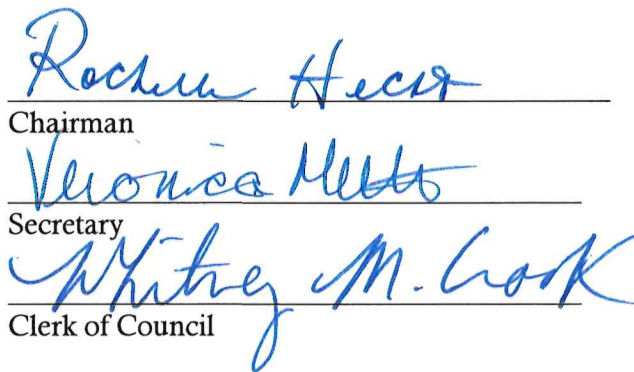 Rochelle Hecht
Chairman
Veronica
Secretary
Whitney M. Cook
Clerk of Council